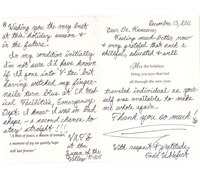 "Wishing you the very best
at this holiday season & in
the future.
In my condition initially
I'm not sure I'd have known
if I'd gone into V-tac but
having watched my finger-
nails turn blue at
Facilities, Emergency
Dept. I knew I was in bad
shape - a second chance to
stay straight!!!
a moment of joy we quietly hope
will last forever
December 13, 2011
Dear Dr.
Feeling much better now
& very grateful that such a
skillful, educated & well
May the holidays
bring you joys that last
all through the new year
traveled individual as your-
self was available to make
me whole again.
Thank you so much!
With respect & gratitude,